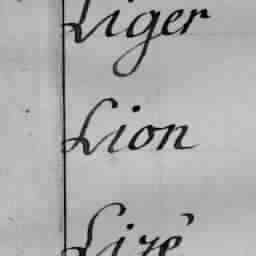 Liger
Lion
Lizé